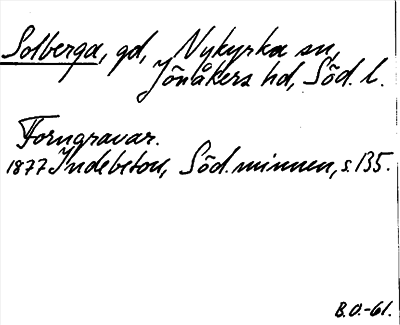 Solberga, gd, Nykyrka sn,
Jönåkers hd, Söd. l.
Forngravar.
1877 Indebetou, Söd. minnen, s. 135.
B.O.-61.